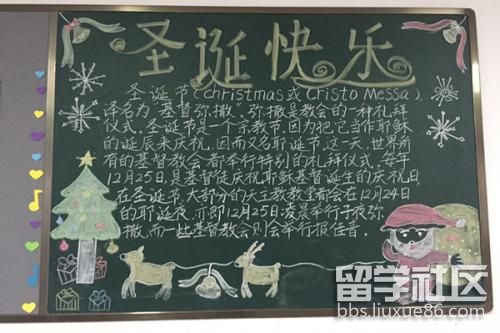 圣诞快乐
圣诞节(christmas或Cristo Messa),
译名为"基督弥撒。弥撒是教会的一种礼拜
仪式。圣诞节是一个宗教节,因为把它当作耶稣
的诞辰来庆祝,因而又名耶诞节。这一天,世界所
有的基督教会都举行特别的礼拜仪式。每年
12月25日,是基督徒庆祝耶稣基督诞生的庆祝日,
在圣诞节,大部分的天主教教堂都会在12月24日
的耶诞夜,亦即12月25日凌晨举行子夜弥
撒,而一些基督教会则会举行报佳音。
留学社区
bbs.liuxue86.com